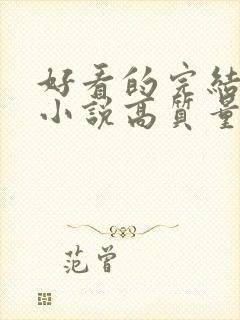 好看的完结
小说高質量
范曾